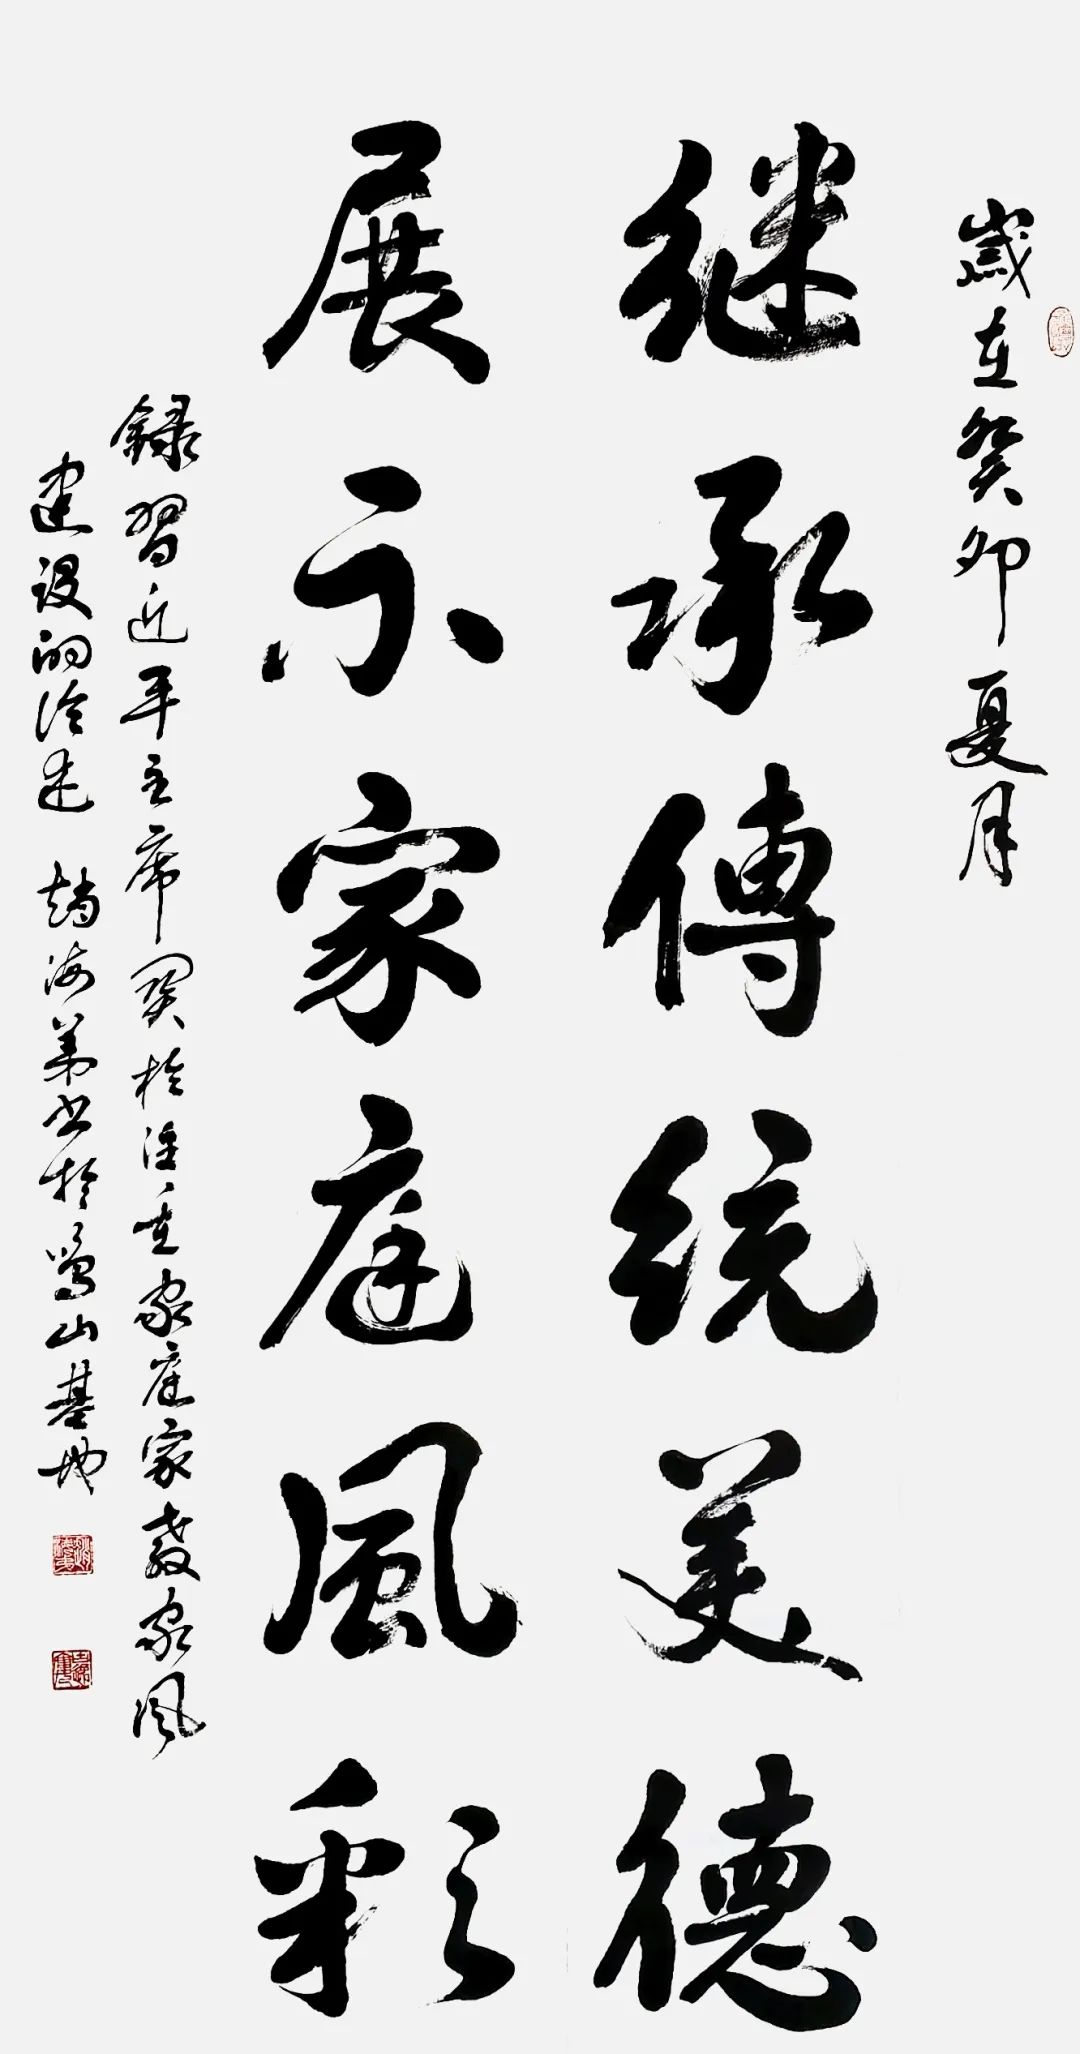 歲在癸卯夏月
继承傳統美德
展示家庭風彩
録習近平主席関於注重家庭家教家风
建设的论述 趙海弟书於鸣山基地